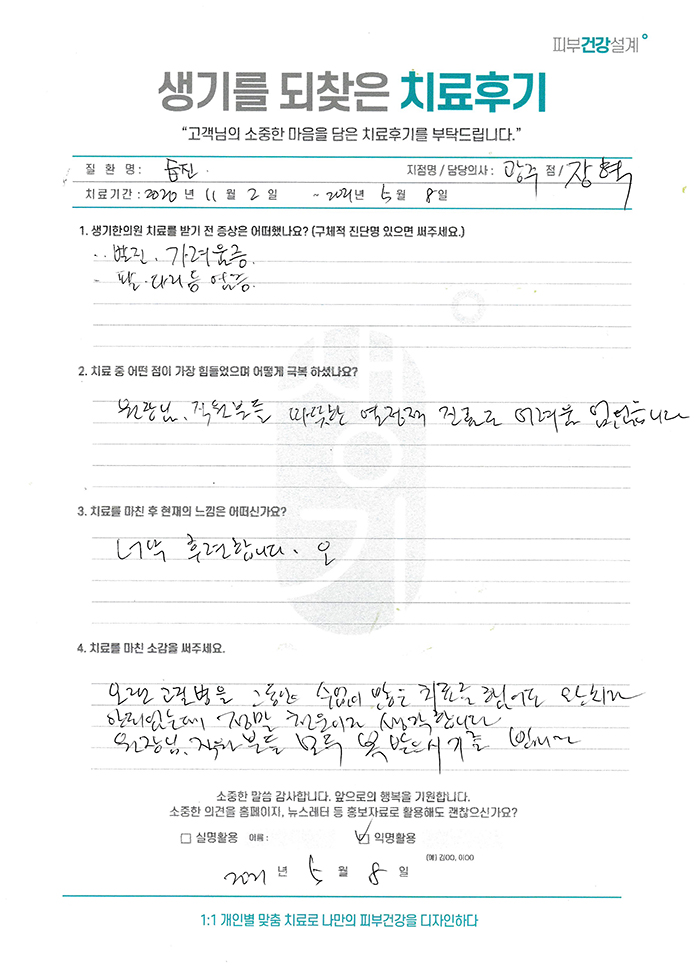 피부건강설계
생기를 되찾은 치료후기
"고객님의 소중한 마음을 담은 치료후기를 부탁드립니다."
질 환 명 : 습진 지점명 / 담당의사 : 광주 점 / 장혁
치료기간 : 2020 년 11 월 2 일 ~ 2021 년 5 월 8 일
1. 생기한의원 치료를 받기 전 증상은 어떠했나요? (구체적 진단명 있으면 써주세요.)
발진. 가려움증.
팔. 다리 등 염증.
2. 치료 중 어떤 점이 가장 힘들었으며 어떻게 극복 하셨나요?
원장님. 직원분들 따뜻한 열정적 진료로 어려움 없었습니다
3. 치료를 마친 후 현재의 느낌은 어떠신가요?
너무 후련합니다.
4. 치료를 마친 소감을 써주세요.
오랜 고질병을 그동안 수없이 많은 치료를 했어도 완치가
안되었는데 정말 천운이라 생각합니다
원장님. 직원분들 모두 복 받으시기를 빕니다
생기
소중한 말씀 감사합니다. 앞으로의 행복을 기원합니다.
소중한 의견을 홈페이지, 뉴스레터 등 홍보자료로 활용해도 괜찮으신가요?
실명활용 이름 : 익명활용
(예) 김OO, 이OO
2021 년 5 월 8 일
1:1 개인별 맞춤 치료로 나만의 피부건강을 디자인하다